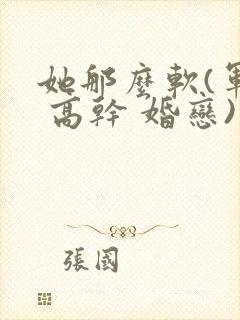 她那麼軟(軍
高幹 婚戀)
張國